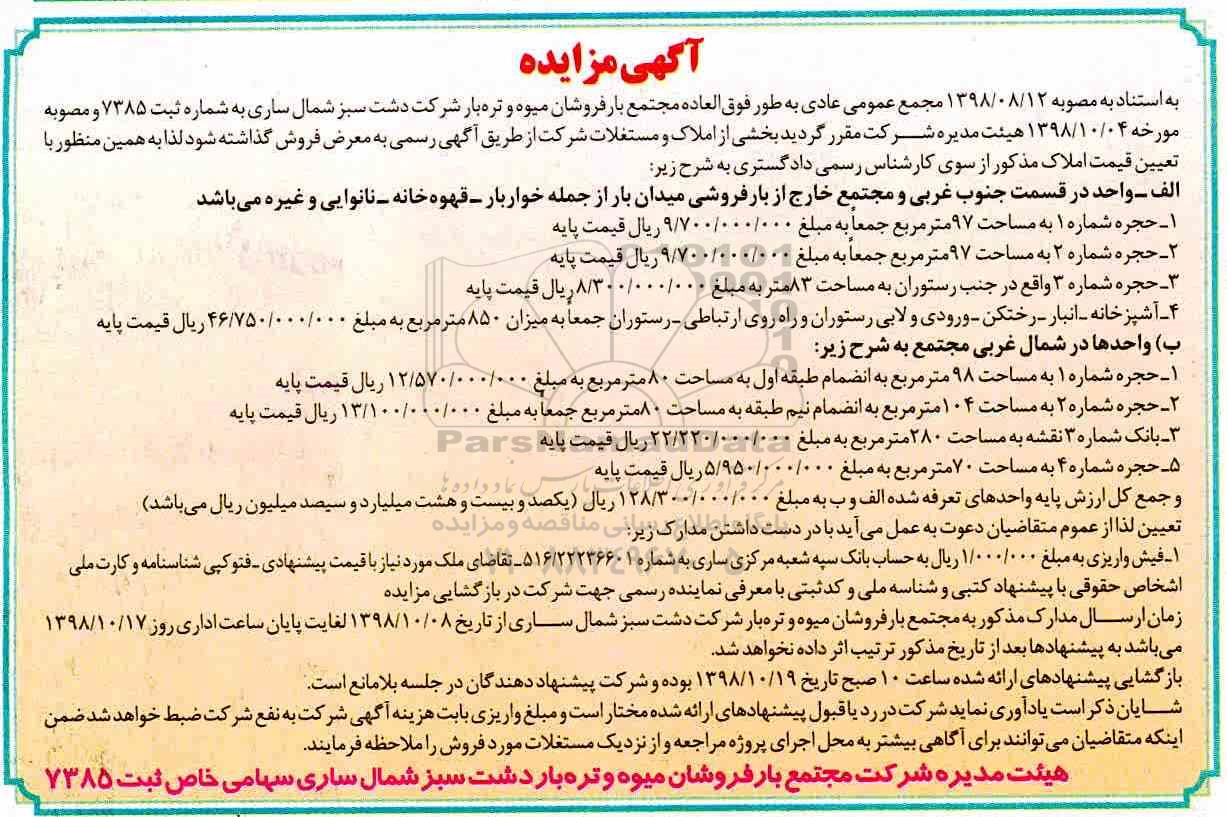 آگهی مزایده
به استناد به مصوبه ۱۳۹۸/۰۸/۱۲ مجمع عمومی عادی به طور فوق‌العاده مجتمع بارفروشان میوه و تره‌بار شرکت دشت سبز شمال ساری به شماره ثبت ۷۳۸۵ و مصوبه
مورخه ۱۳۹۸/۱۰/۰۴ هیئت مدیره شرکت مقرر گردید بخشی از املاک و مستغلات شرکت از طریق آگهی رسمی به معرض فروش گذاشته شود لذا به همین منظور با
تعیین قیمت املاک مذکور از سوی کارشناس رسمی دادگستری به شرح زیر:
الف ـ واحد در قسمت جنوب غربی و مجتمع خارج از بارفروشی میدان بار از جمله خواربار ـ قهوه‌خانه ـ نانوایی و غیره می‌باشد
۱ـ حجره شماره ۱ به مساحت ۹۷ مترمربع جمعاً به مبلغ ۹/۷۰۰/۰۰۰/۰۰۰ ریال قیمت پایه
۲ـ حجره شماره ۲ به مساحت ۹۷ مترمربع جمعاً به مبلغ ۹/۷۰۰/۰۰۰/۰۰۰ ریال قیمت پایه
۳ـ حجره شماره ۳ واقع در جنب رستوران به مساحت ۸۳ متر به مبلغ ۸/۳۰۰/۰۰۰/۰۰۰ ریال قیمت پایه
۴ـ آشپزخانه ـ انبار ـ رختکن ـ ورودی و لابی رستوران و راه روی ارتباطی ـ رستوران جمعاً به میزان ۸۵۰ مترمربع به مبلغ ۴۶/۷۵۰/۰۰۰/۰۰۰ ریال قیمت پایه
ب) واحدها در شمال غربی مجتمع به شرح زیر:
۱ـ حجره شماره ۱ به مساحت ۹۸ مترمربع به انضمام طبقه اول به مساحت ۸۰ مترمربع به مبلغ ۱۲/۵۷۰/۰۰۰/۰۰۰ ریال قیمت پایه
۲ـ حجره شماره ۲ به مساحت ۱۰۴ مترمربع به انضمام نیم طبقه به مساحت ۸۰ مترمربع جمعاً به مبلغ ۱۳/۱۰۰/۰۰۰/۰۰۰ ریال قیمت پایه
۳ـ بانک شماره ۳ نقشه به مساحت ۲۸۰ مترمربع به مبلغ ۲۲/۲۲۰/۰۰۰/۰۰۰ ریال قیمت پایه
۵ـ حجره شماره ۴ به مساحت ۷۰ مترمربع به مبلغ ۵/۹۵۰/۰۰۰/۰۰۰ ریال قیمت پایه
و جمع کل ارزش پایه واحدهای تعرفه شده الف و ب به مبلغ ۱۲۸/۳۰۰/۰۰۰/۰۰۰ ریال (یکصد و بیست و هشت میلیارد و سیصد میلیون ریال می‌باشد)
تعیین لذا از عموم متقاضیان دعوت به عمل می‌آید با در دست داشتن مدارک زیر:
۱ـ فیش واریزی به مبلغ ۱/۰۰۰/۰۰۰ ریال به حساب بانک سپه شعبه مرکزی ساری به شماره ـ تقاضای ملک مورد نیاز با قیمت پیشنهادی ـ فتوکپی شناسنامه و کارت ملی
اشخاص حقوقی با پیشنهاد کتبی و شناسه ملی و کدثبتی با معرفی نماینده رسمی جهت شرکت در بازگشایی مزایده
زمان ارسال مدارک مذکور به مجتمع بارفروشان میوه و تره‌بار شرکت دشت سبز شمال ساری از تاریخ ۱۳۹۸/۱۰/۰۸ لغایت پایان ساعت اداری روز ۱۳۹۸/۱۰/۱۷
می‌باشد به پیشنهادها بعد از تاریخ مذکور ترتیب اثر داده نخواهد شد.
بازگشایی پیشنهادهای ارائه شده ساعت ۱۰ صبح تاریخ ۱۳۹۸/۱۰/۱۹ بوده و شرکت پیشنهاد دهندگان در جلسه بلامانع است.
شایان ذکر است یادآوری نماید شرکت در رد یا قبول پیشنهادهای ارائه شده مختار است و مبلغ واریزی بابت هزینه آگهی شرکت به نفع شرکت ضبط خواهد شد ضمن
اینکه متقاضیان می‌توانند برای آگاهی بیشتر به محل اجرای پروژه مراجعه و از نزدیک مستغلات مورد فروش را ملاحظه فرمایند.
هیئت مدیره شرکت مجتمع بارفروشان میوه و تره‌بار دشت سبز شمال ساری سهامی خاص ثبت ۷۳۸۵